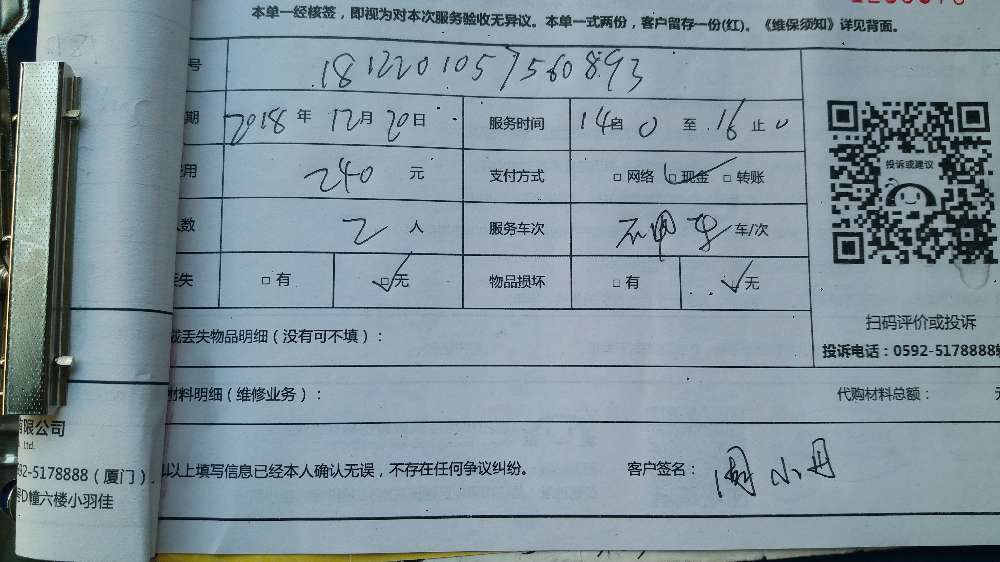 本单一经核签，即视为对本次服务验收无异议。本单一式两份，客户留存一份(红)。《维保须知》详见背面。
号 1812201057560893
期 2018年12月20日 服务时间 14启0至16止0
用 240元 支付方式 □网络 ☑现金 □转账
人数 2人 服务车次 不用车 车/次
丢失 □有 ☑无 物品损坏 □有 ☑无
投诉或建议
扫码评价或投诉
投诉电话：0592-5178888转
或丢失物品明细（没有可不填）：
材料明细（维修业务）： 代购材料总额： 元
以上填写信息已经本人确认无误，不存在任何争议纠纷。 客户签名：周小丹
有限公司
Ltd.
592-5178888（厦门）
D幢六楼小羽佳